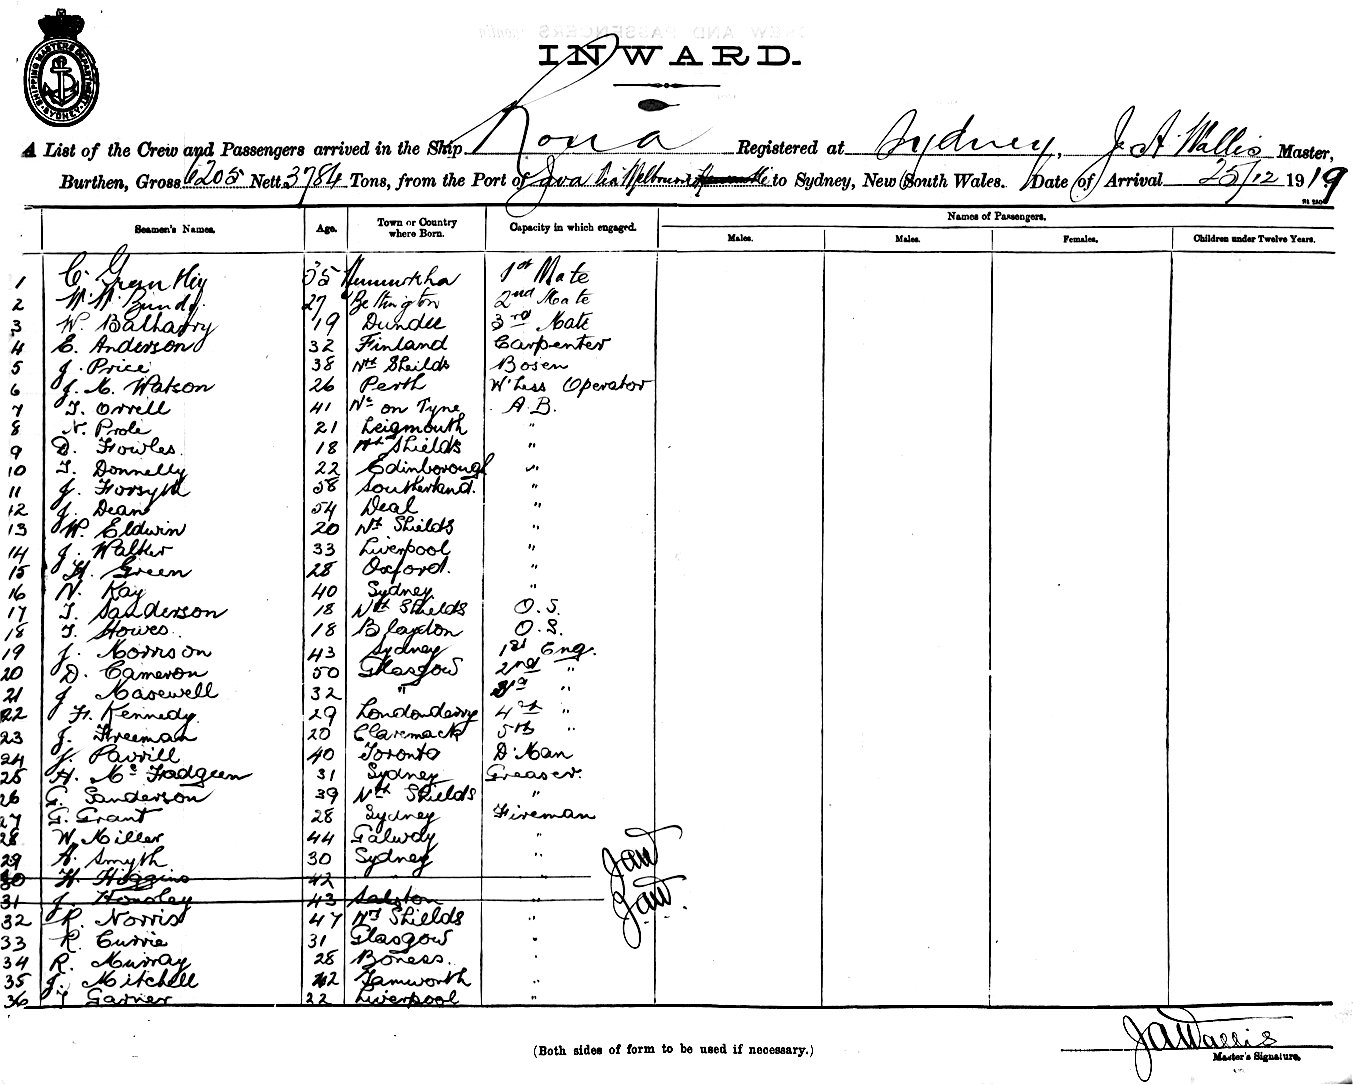 SHIPPING MASTERS DEPARTMENT SYDNEY
INWARD.
A List of the Crew and Passengers arrived in the Ship Rona Registered at Sydney, J A Wallis Master,
Burthen, Gross 6205 Nett 3784 Tons, from the Port of Java Via Melbourne to Sydney, New South Wales. Date of Arrival 25/12 1919
Seamen's Names. Age. Town or Country where Born. Capacity in which engaged. Names of Passengers.
Males. Males. Females. Children under Twelve Years.
1 C. 35 1st Mate
2 W. W. Bundy. 27 2nd Mate
3 W. Balhatry 19 Dundee 3rd Mate
4 E. Anderson 32 Finland Carpenter
5 J. Price 38 Nth Sheilds Bosen
6 J. M. Watson 26 Perth W'less Operator
7 T. Orrell 41 Nc on Tyne A.B.
8 N. Prole 21 Leigmouth "
9 D. Fowles. 18 Nth Shields "
10 T. Donnelly 22 Edinborough "
11 J. Forsyth 58 Southerland. "
12 J. Dean 54 Deal "
13 W. Eldwin 20 Nth Shields "
14 J. Walker 33 Liverpool "
15 H. Green 28 Oxford. "
16 N. Kay 40 Sydney "
17 T. Sanderson 18 Nth Shields O.S.
18 T. Howes. 18 Blaydon O.S.
19 J. Morrison 43 Sydney 1st Eng.
20 D. Cameron 50 Glasgow 2nd "
21 J Maxwell 32 " 3rd "
22 H. Kennedy. 29 Londonderry 4th "
23 J. Freeman 20 Claremack 5th "
24 J. Pavrill 40 Toronto D'Man
25 H. Mc Fadgeen 31 Sydney Greaser.
26 G. Sanderson 39 Nth Shields "
27 G. Grant 28 Sydney Fireman
28 W. Miller 44 Galway "
29 A. Smyth 30 Sydney "
30 H. Higgins 42 " JAW
31 J. Housley 43 Salston " JAW.
32 R. Norris 47 Nth Shields "
33 R. Currie 31 Glasgow "
34 R. Murray 28 Boness. "
35 J. Mitchell 42 Tamworth "
36 Garner 22 Liverpool "
JAWallis
(Both sides of form to be used if necessary.) Master's Signature.